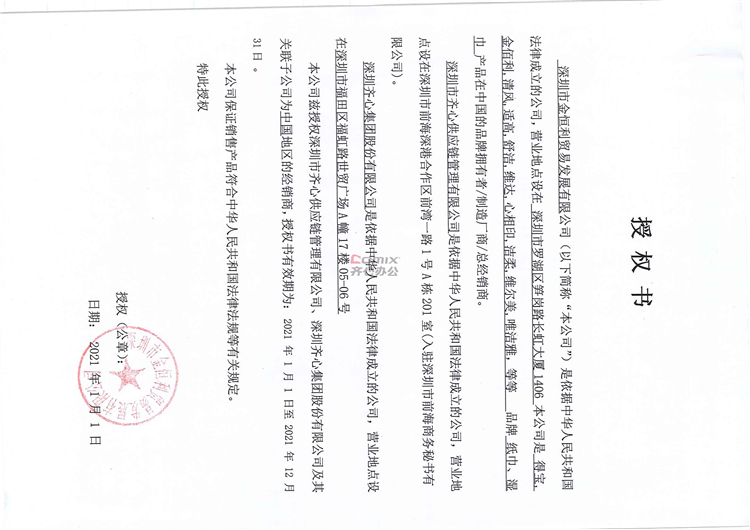 授 权 书
深圳市金恒利贸易发展有限公司（以下简称“本公司”）是依据中华人民共和国
法律成立的公司，营业地点设在 深圳市罗湖区笋岗路长虹大厦 1406 本公司是 得宝、
金佰利, 清风, 适高, 舒洁, 维达, 心相印, 洁柔, 维尔美, 唯洁雅，等等 品牌 纸巾、湿
巾 产品在中国的品牌拥有者/制造厂商/总经销商。
深圳市齐心供应链管理有限公司是依据中华人民共和国法律成立的公司，营业地
点设在深圳市前海深港合作区前湾一路 1 号 A 栋 201 室(入驻深圳市前海商务秘书有
限公司）。
深圳齐心集团股份有限公司是依据中华人民共和国法律成立的公司，营业地点设
在深圳市福田区福虹路世贸广场 A 幢 17 楼 05-06 号
本公司兹授权深圳市齐心供应链管理有限公司、深圳齐心集团股份有限公司及其
关联子公司为中国地区的经销商，授权书有效期为：2021 年 1 月 1 日至 2021 年 12 月
31 日 。
本公司保证销售产品符合中华人民共和国法律法规等有关规定。
特此授权
授权（公章）：
日期：2021 年 1 月 1 日
深圳市金恒利贸易发展有限公司
Comix
齐心办公